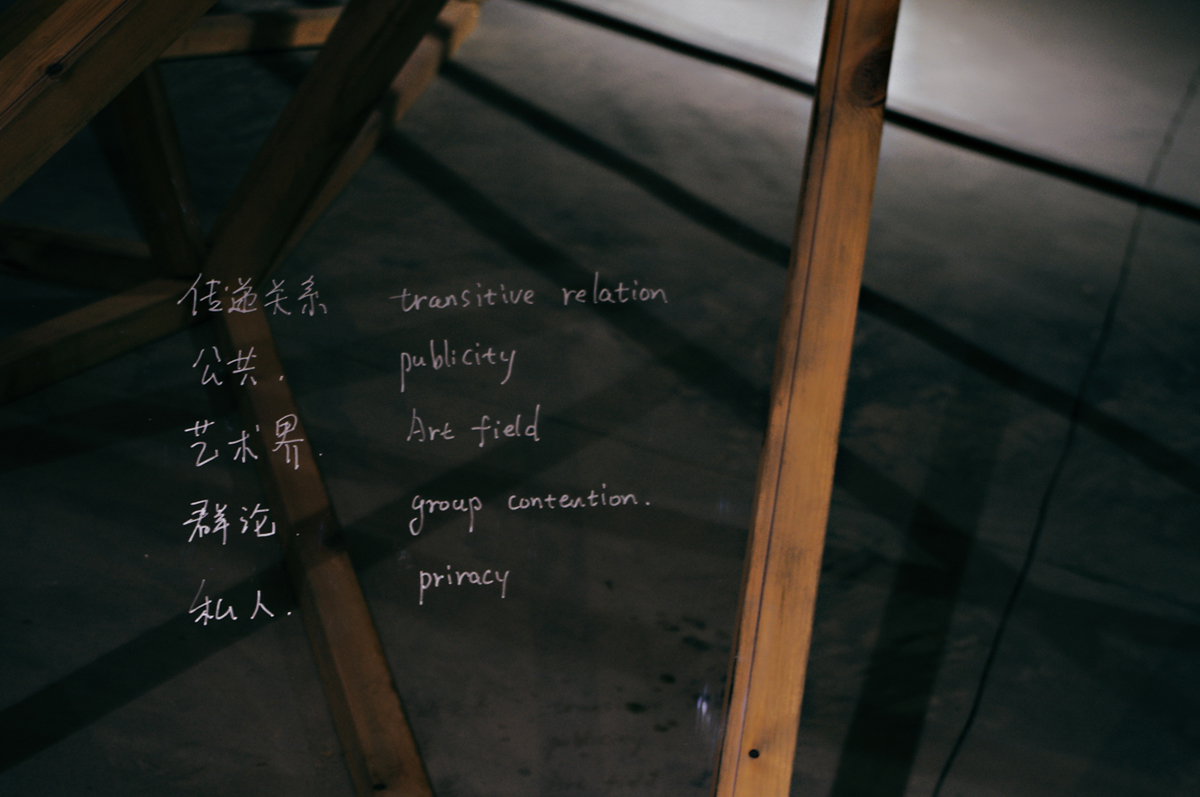 传递关系 transitive relation
公共. publicity
艺术界. Art field
群论. group contention.
私人. privacy